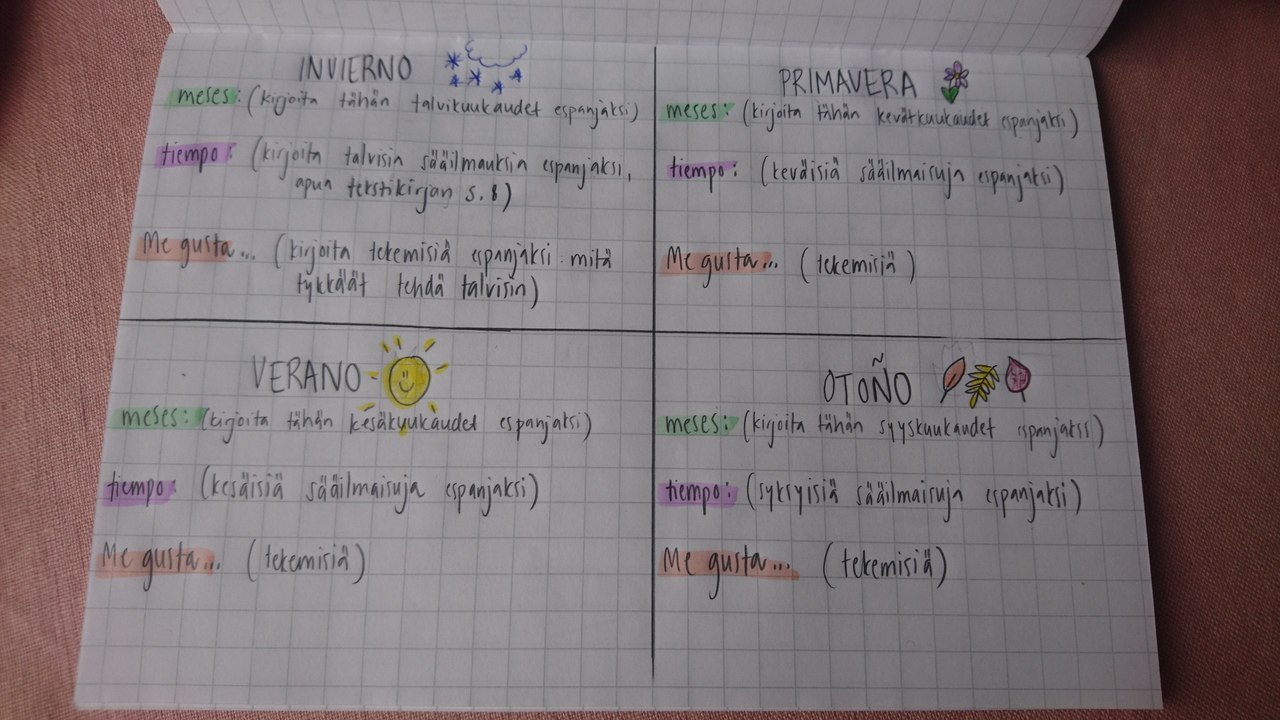 INVIERNO
meses: (kirjoita tähän talvikuukaudet espanjaksi)
tiempo: (kirjoita talvisin sääilmauksin espanjaksi,
apun tekstikirjan s. 8)
Me gusta... (kirjoita tekemisiä espanjaksi mitä
tykkäät tehdä talvisin)
PRIMAVERA
meses: (kirjoita tähän kevätkuukaudet espanjaksi)
tiempo: (keväisiä sääilmaisuja espanjaksi)
Me gusta... (tekemisiä)
VERANO
meses: (kirjoita tähän kesäkuukaudet espanjaksi)
tiempo: (kesäisiä sääilmaisuja espanjaksi)
Me gusta... (tekemisiä)
OTOÑO
meses: (kirjoita tähän syyskuukaudet espanjaksi)
tiempo: (syksyisiä sääilmaisuja espanjaksi)
Me gusta... (tekemisiä)